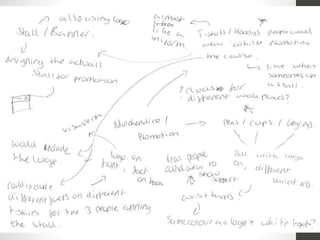 also using logo
Stall / Banner.
designing the actual
Stall for promotion
almost
like a
uniform
T-shirts / Hoodys people could
wear whilst promoting
the course.
like when
someone's on
a stall.
for
different workplaces?
Visual Merch
Merchandise /
Promotion.
Pens / cups / 
would include
the logo.
logo on
front, text
on back
people
could wear to
show
support
All with logo
on, different
could include
different jobs on different
t-shirts for the 3 people running
the stall.
wrist bands
Same colour as logo + white fonts?